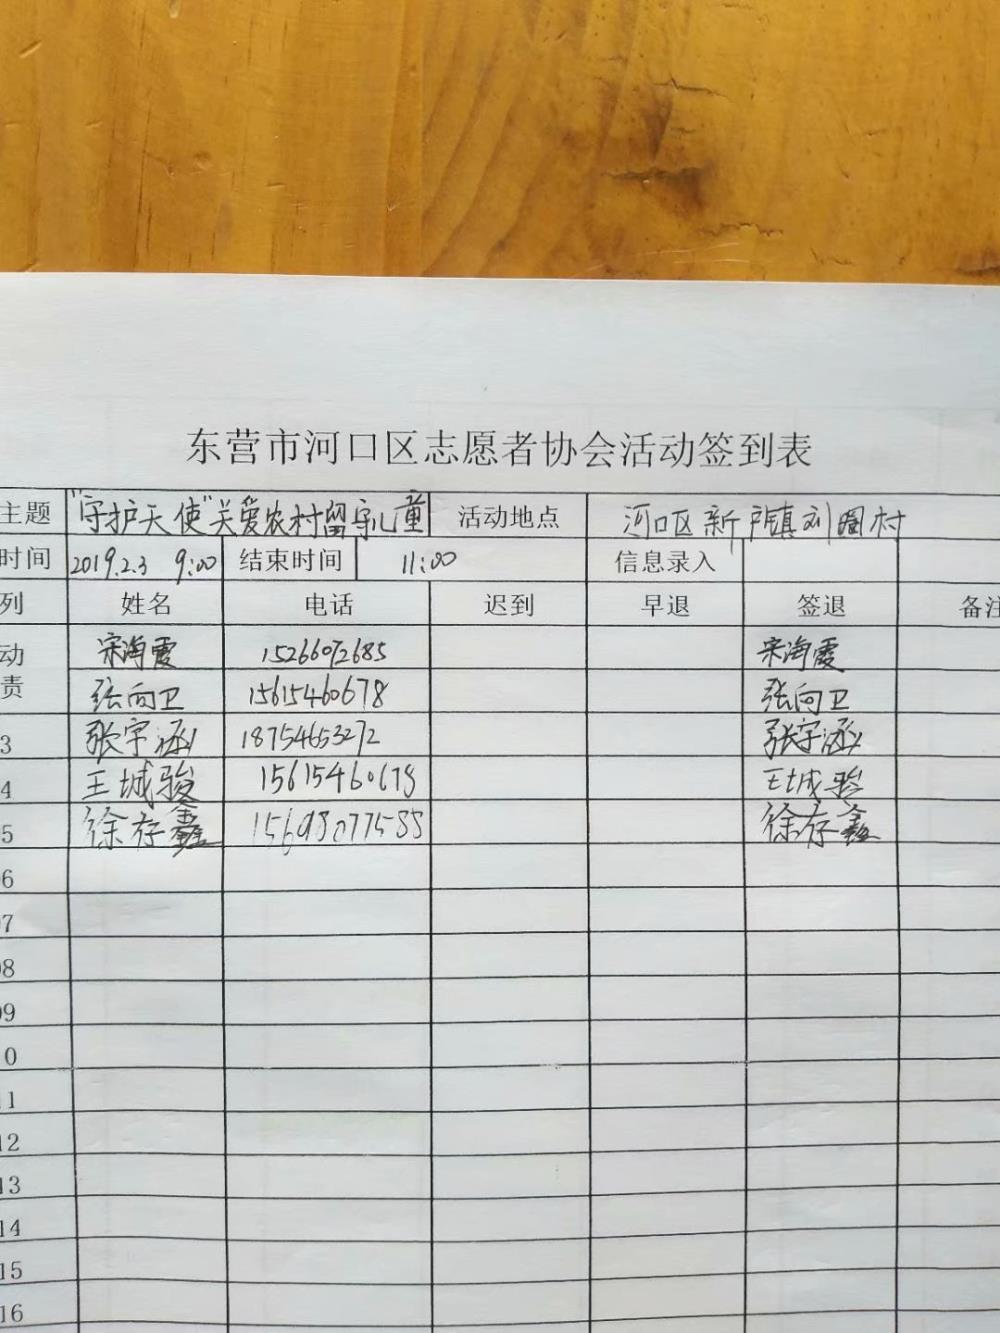 东营市河口区志愿者协会活动签到表
主题 "守护天使"关爱农村留守儿童 活动地点 河口区新户镇刘囤村
时间 2019.2.3 9:00 结束时间 11:00 信息录入
列 姓名 电话 迟到 早退 签退 备注
动
责
宋海霞 15266092685 宋海霞
张向卫 15615460678 张向卫
3 张宇涵 18754653272 张宇涵
4 王城骏 15615460678 王城骏
5 徐存鑫 15698077588 徐存鑫
06
07
08
09
10
11
12
13
14
15
16